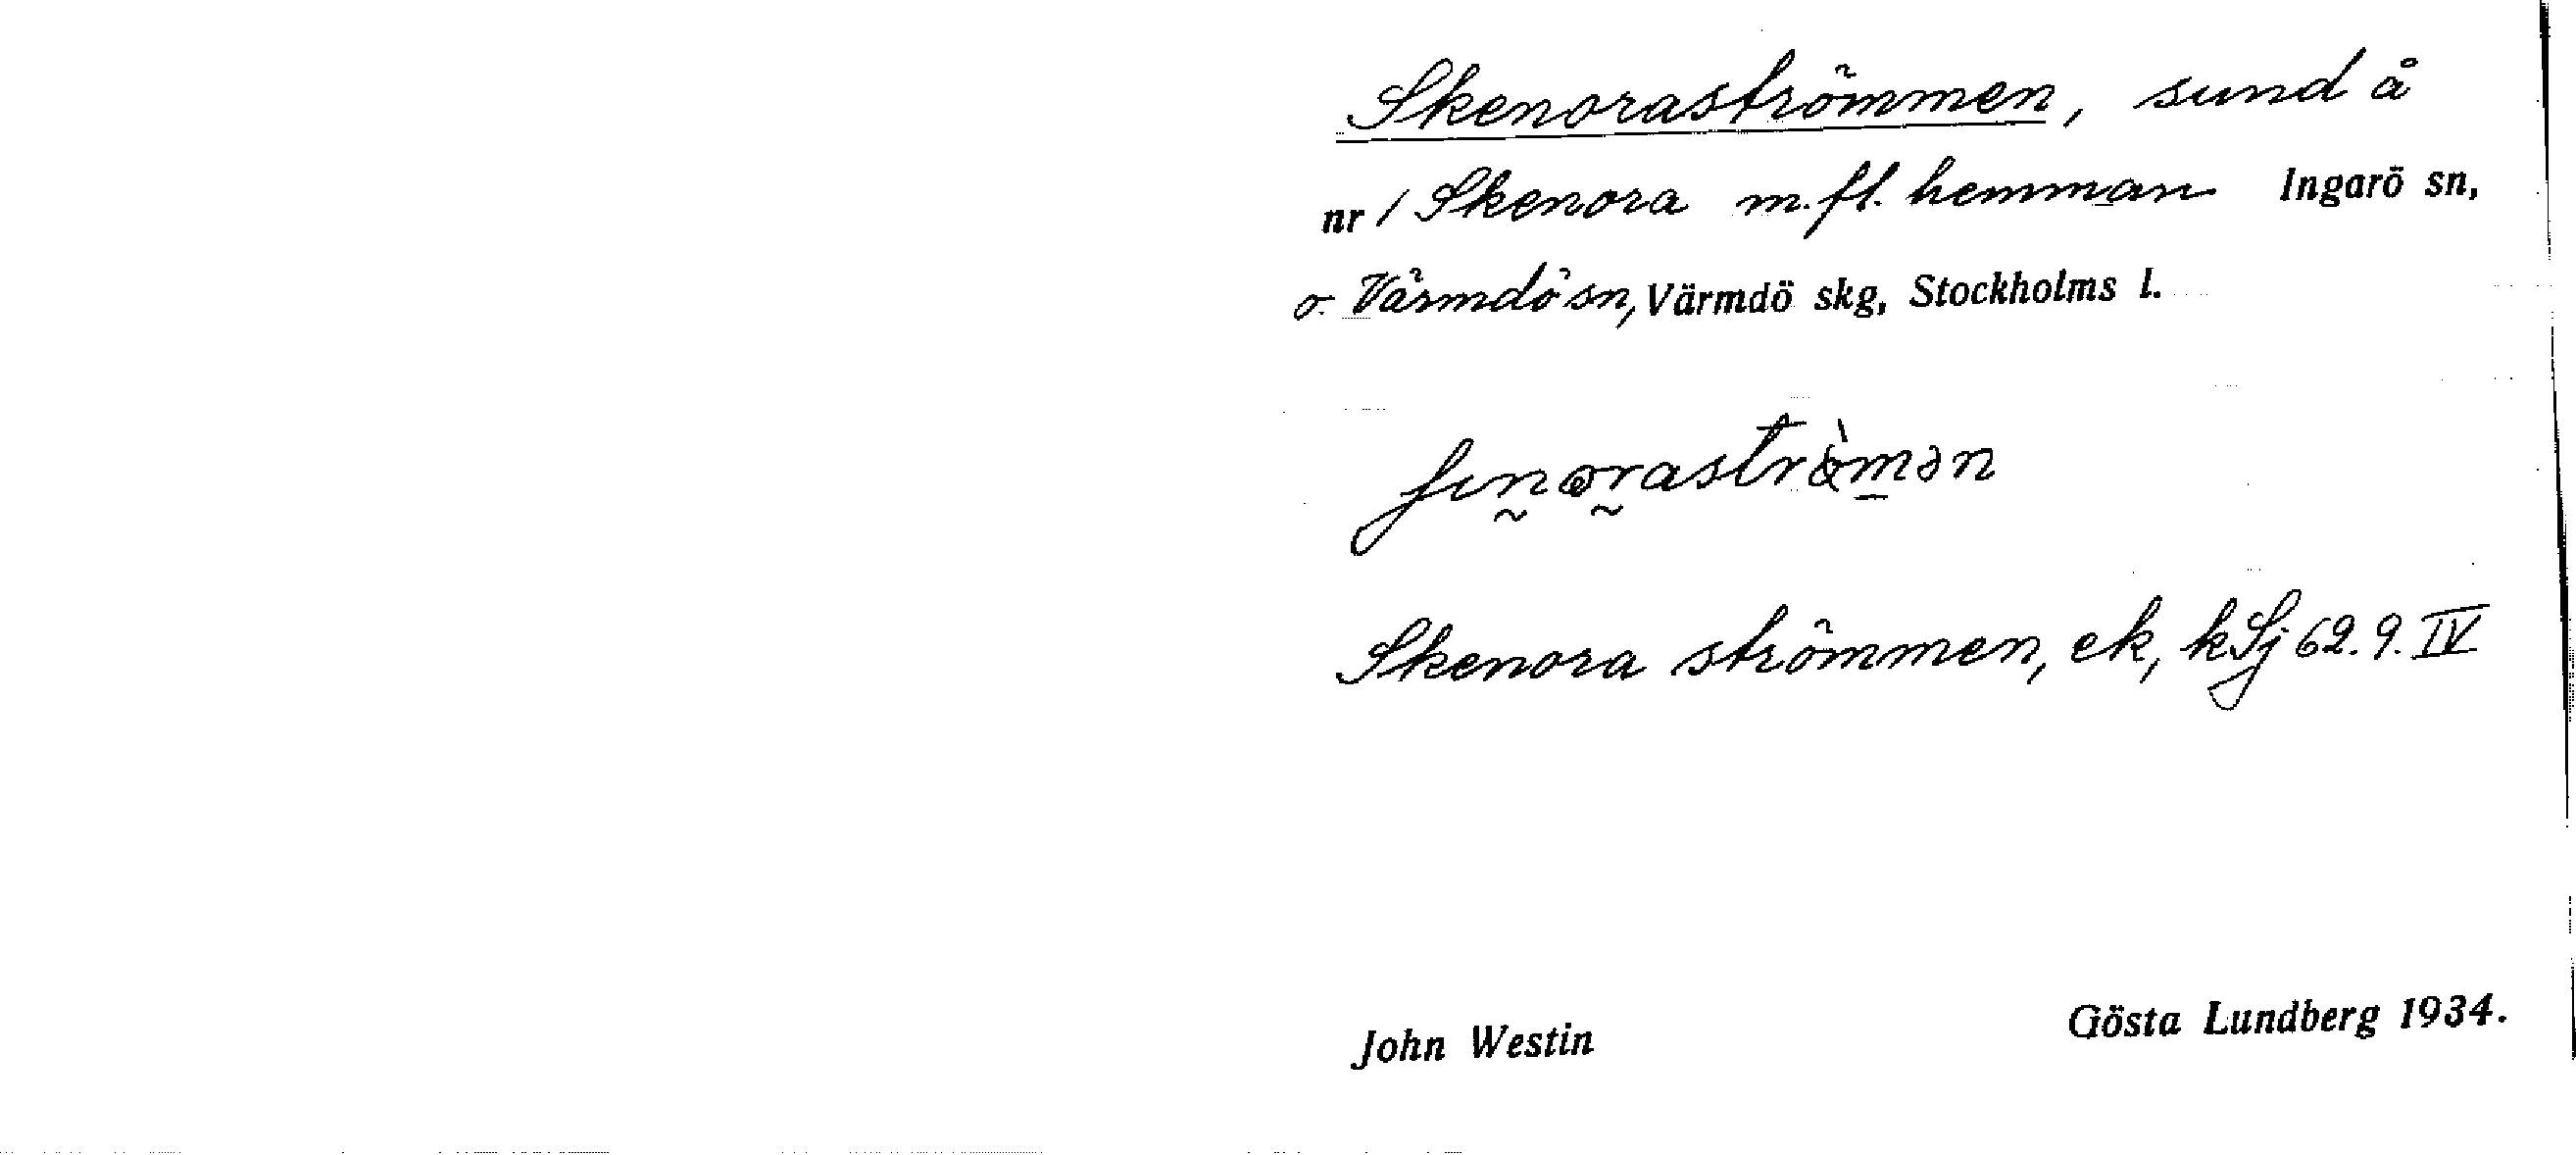 Skenoraströmmen, sund å
nr 1 Skenora m.fl. hemman Ingarö sn,
o. Värmdö sn, Värmdö skg, Stockholms l.
Skenora strömmen, ek, kSj 62.9.IV
John Westin
Gösta Lundberg 1934.